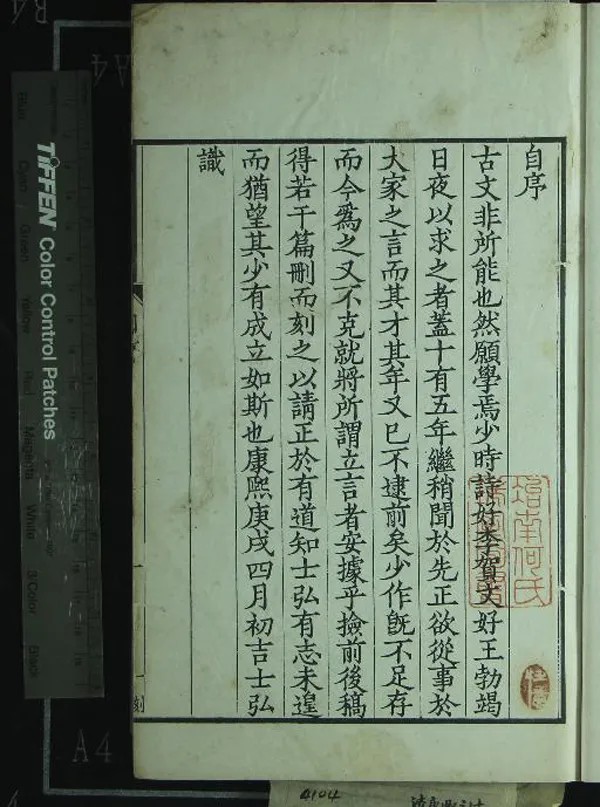 自序
古文非所能也然願學焉少時詩好李賀文好王勃竭
日夜以求之者蓋十有五年繼稍聞於先正欲從事於
大家之言而其才其年又已不逮前矣少作旣不足存
而今爲之又不克就將所謂立言者安據乎撿前後稿
得若干篇刪而刻之以請正於有道知士弘有志未遑
而猶望其少有成立如斯也康熙庚戌四月初吉士弘
識
何氏
TIFFEN Color Control Patches
Blue
Cyan
Green
Yellow
Red
Magenta
White
3/Color
Black
A4
A4
4104